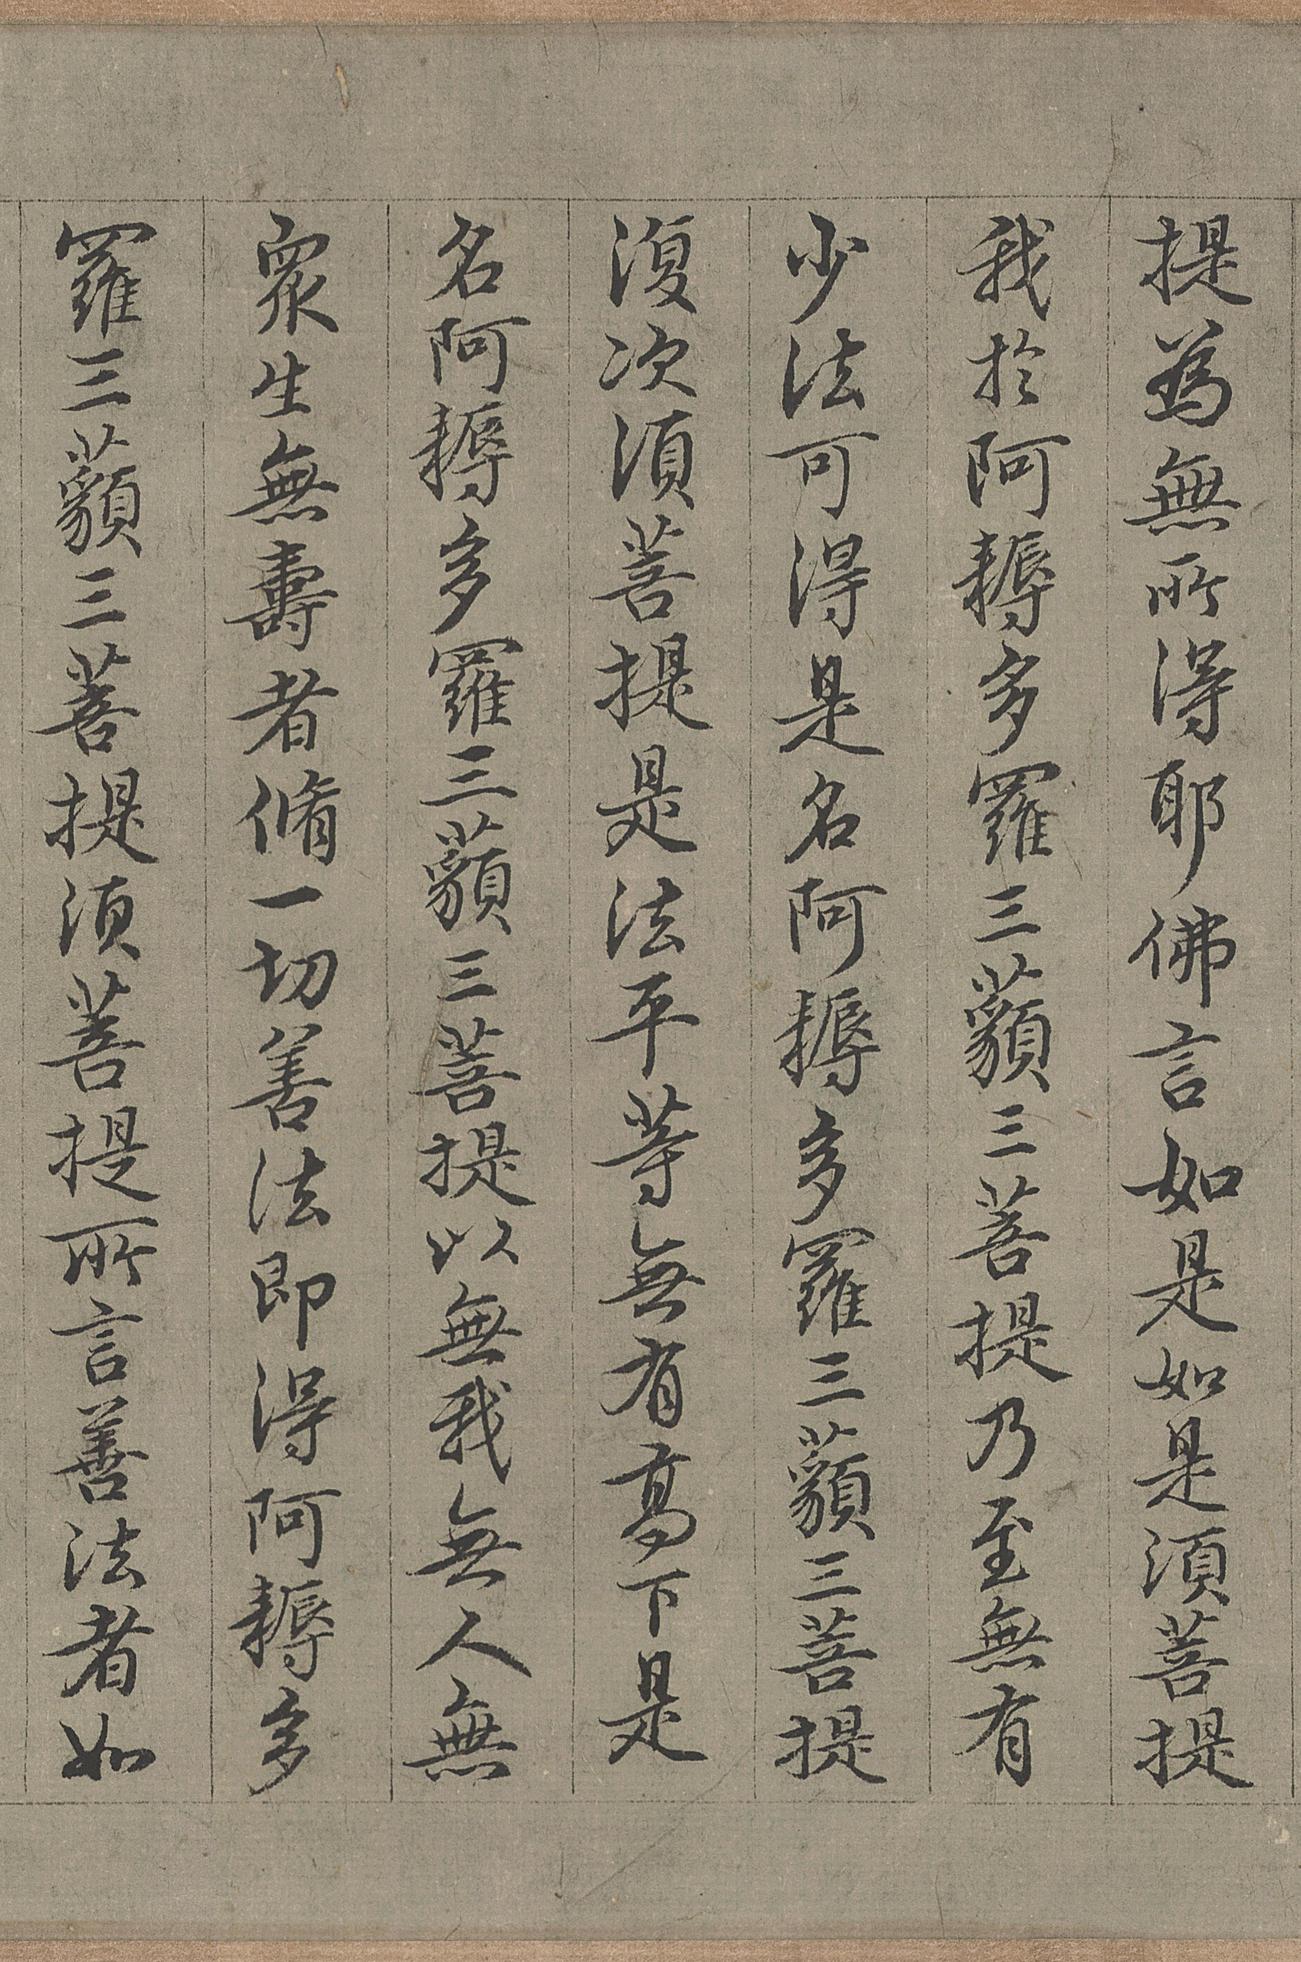 提為無所得耶佛言如是如是須菩提
我於阿耨多羅三藐三菩提乃至無有
少法可得是名阿耨多羅三藐三菩提
復次須菩提是法平等無有高下是
名阿耨多羅三藐三菩提以無我無人無
眾生無壽者脩一切善法即得阿耨多
羅三藐三菩提須菩提所言善法者如